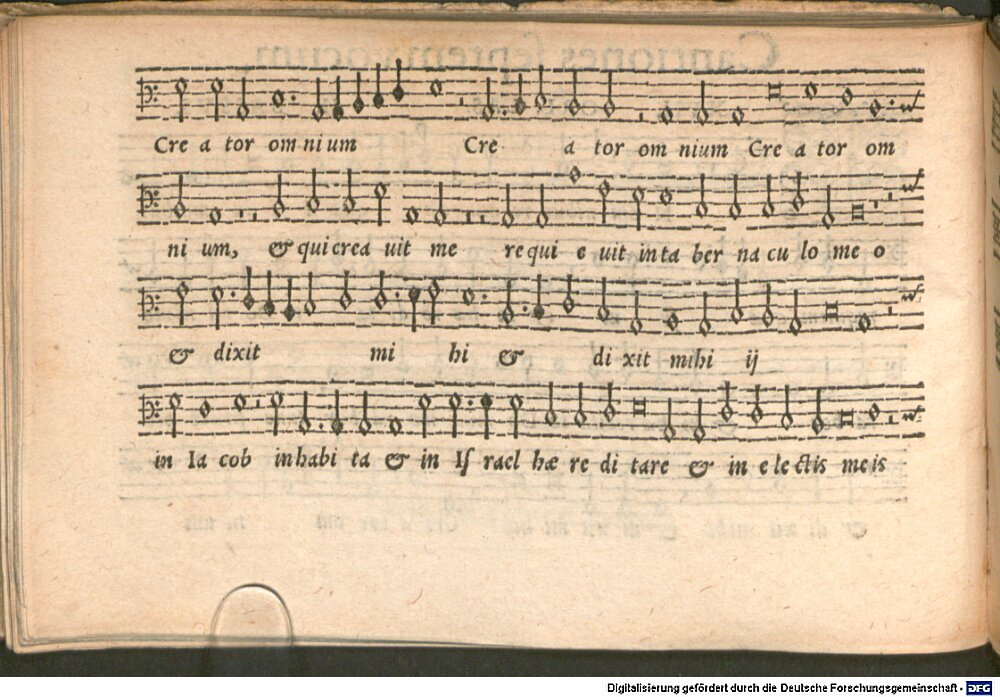 Cre a tor om ni um Cre a tor om nium Cre a tor om
ni um, & qui crea uit me re qui e uit in ta ber na cu lo me o
& dixit mi hi & di xit mihi ij
in Ia cob inhabi ta & in Iſ rael hæ re di tare & in e le ctis meis
Digitalisierung gefördert durch die Deutsche Forschungsgemeinschaft - DFG